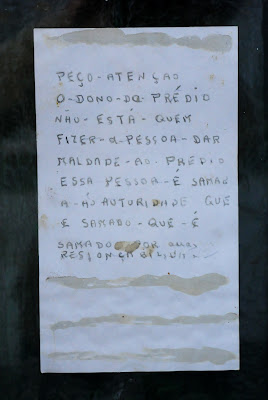 PEÇO - ATENÇAO
O - DONO - DO - PRÉDIO
NÃO - ESTÁ - QUEM
FIZER - A - PESSOA - DAR
MALDADE - AO - PREDIO
ESSA PESSOA - É SAMAN
A - ÀS AUTORIDADE QUE
E SAMADO - QUE - É
SAMADO POR